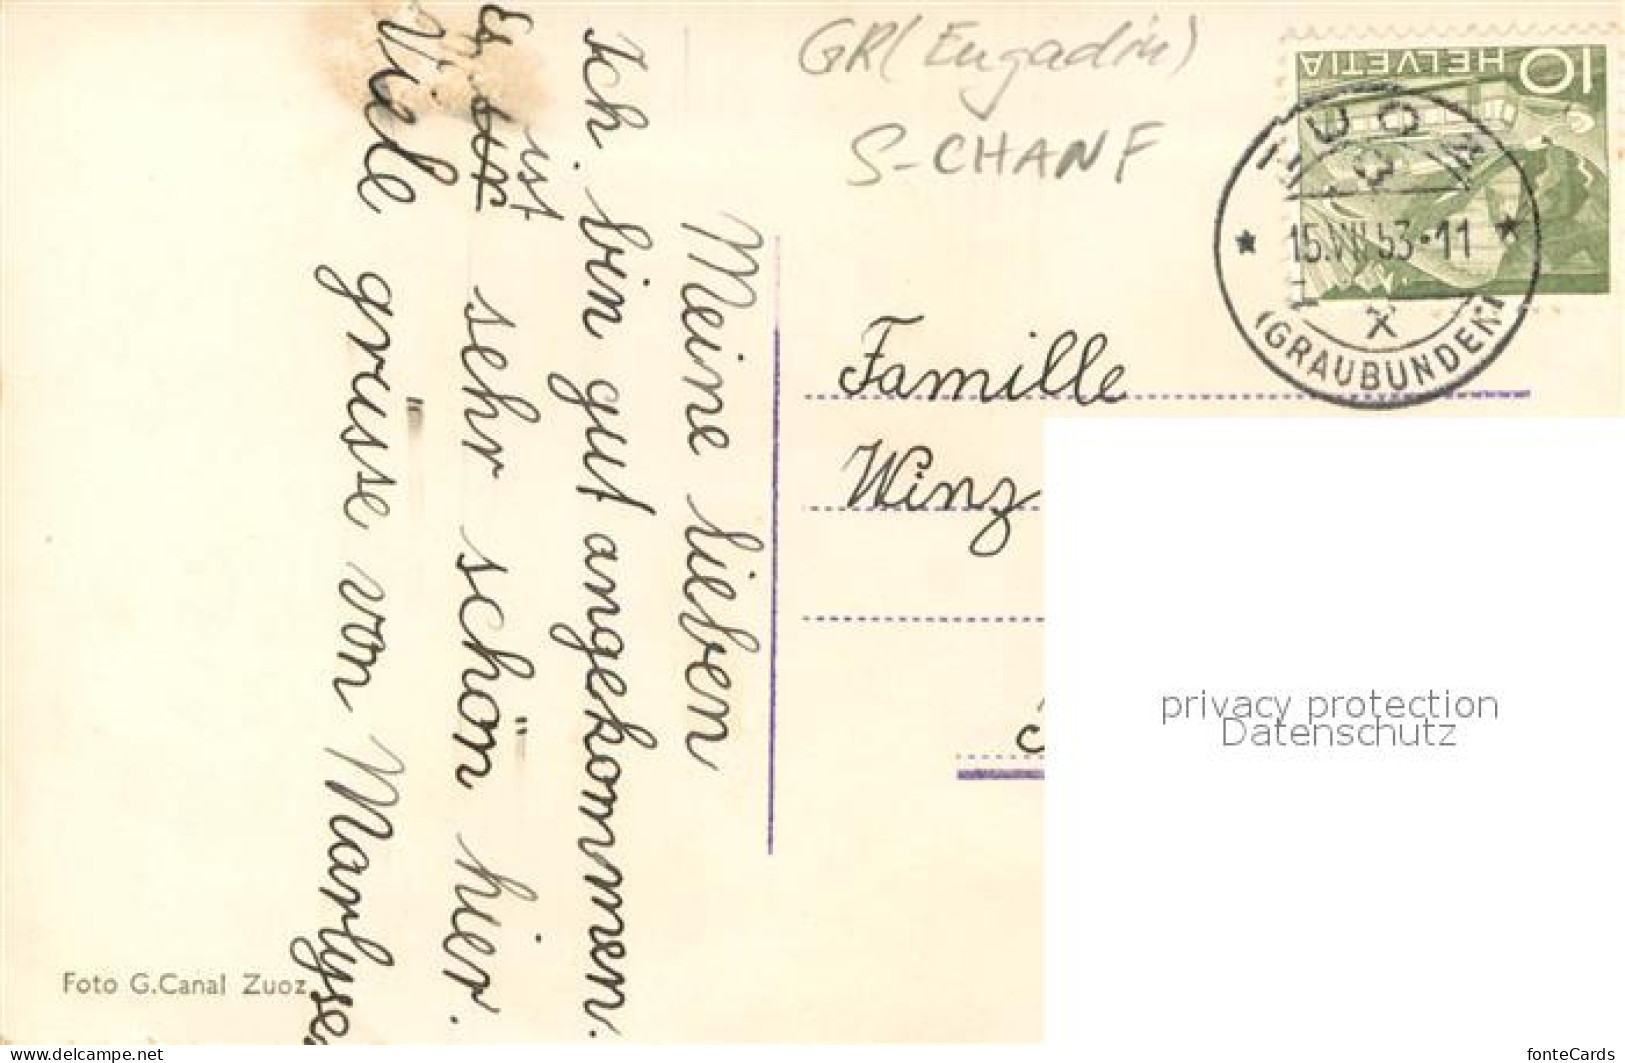 GR (Engadin)
S-CHANF
HELVETIA 10
ZUOZ
15.VII.53-11
(GRAUBÜNDEN)
Meine lieben
Ich bin gut angekommen.
ist
Es sehr schön hier.
Viele grüsse von Marlyse
Famille
Winz
privacy protection
Datenschutz
Foto G.Canal Zuoz
www.delcampe.net
fonteCards